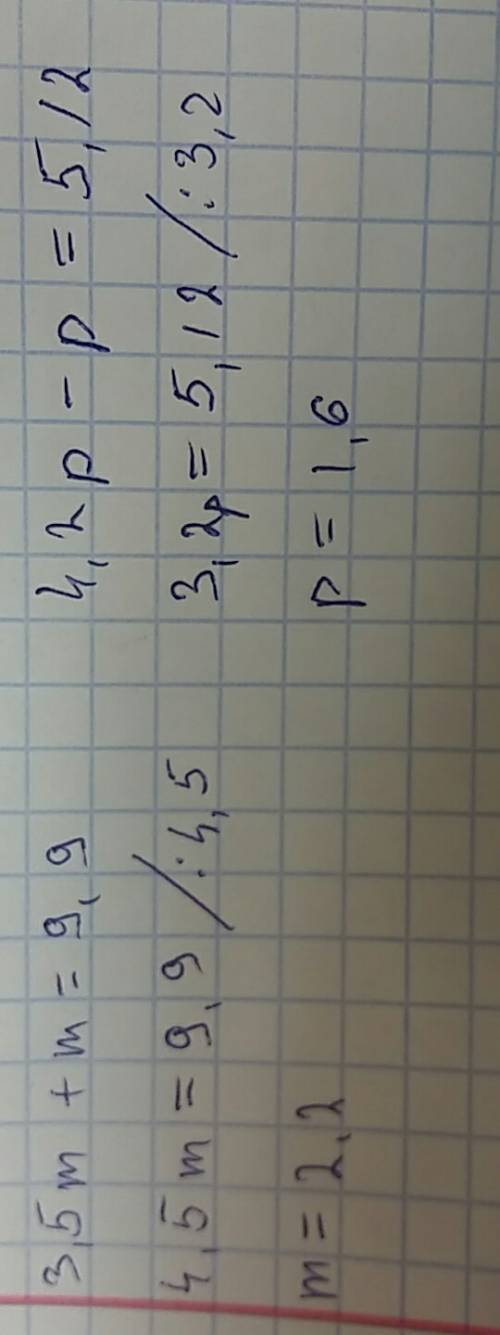 3,5m + m = 9,9
4,5m = 9,9 /:4,5
m = 2,2
4,2p - p = 5,12
3,2p = 5,12 /:3,2
p = 1,6